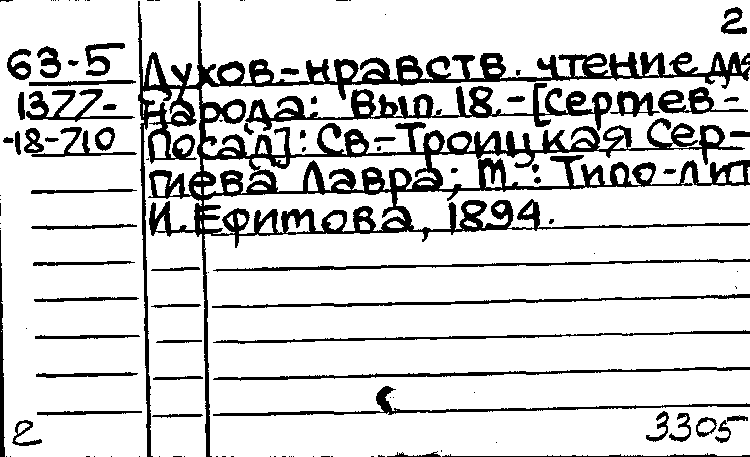 2
63-5 Духов.-нравств. чтение для
1377- народа: Вып. 18.-[Сергиев-
-18-710 Посад]: Св.-Троицкая Сер-
гиева Лавра; М.: Типо-лит
И. Ефимова, 1894.
2 3305